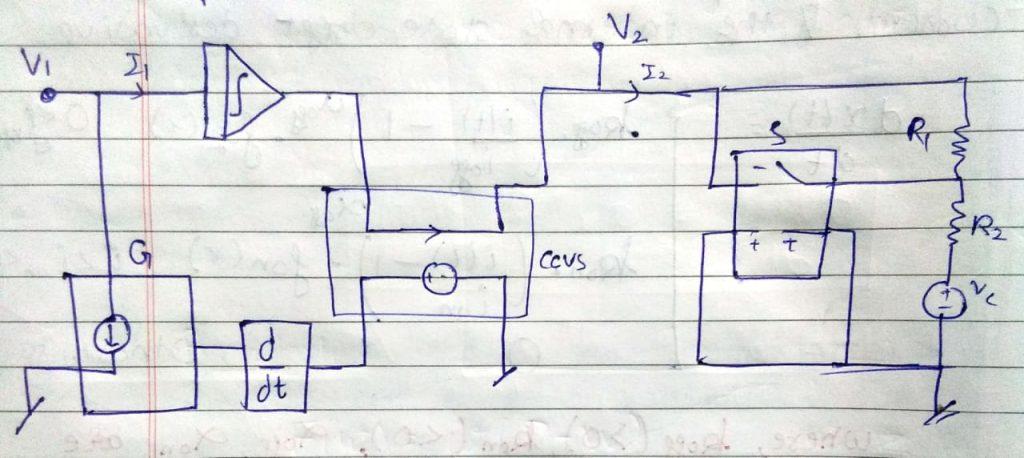 V1
I1
∫
V2
I2
S
R1
R2
Vc
G
CCVS
d
dt
-
+ +
+ -
+
-